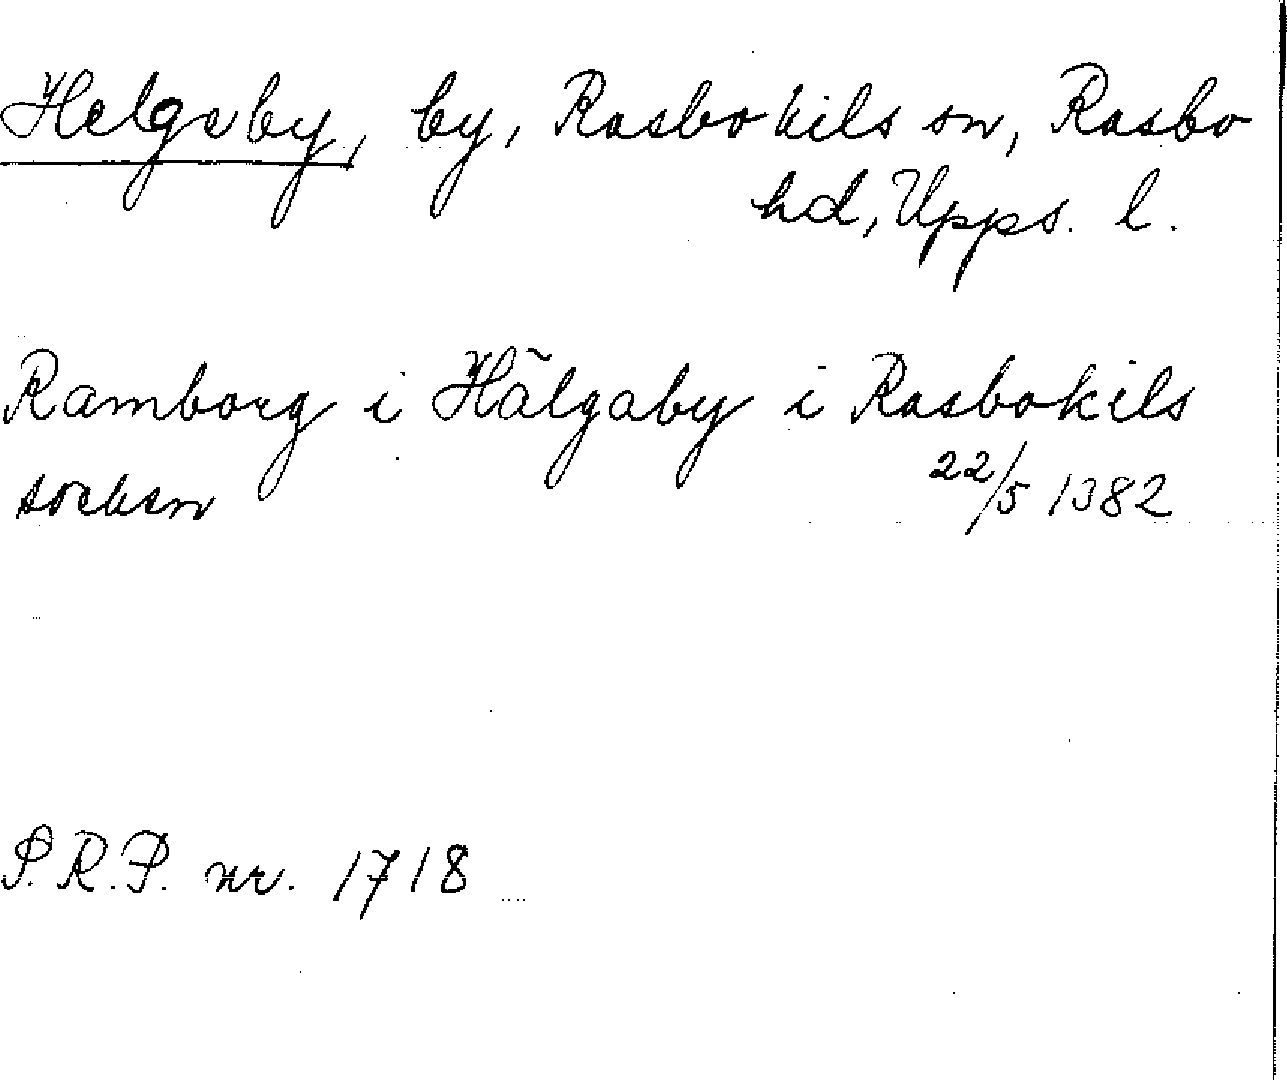 Helgeby, by, Rasbokils sn, Rasbo
hd, Upps. l.
Ramborg i Hälgaby i Rasbokils
socken 22/5 1382
S.R.P. nr. 1718